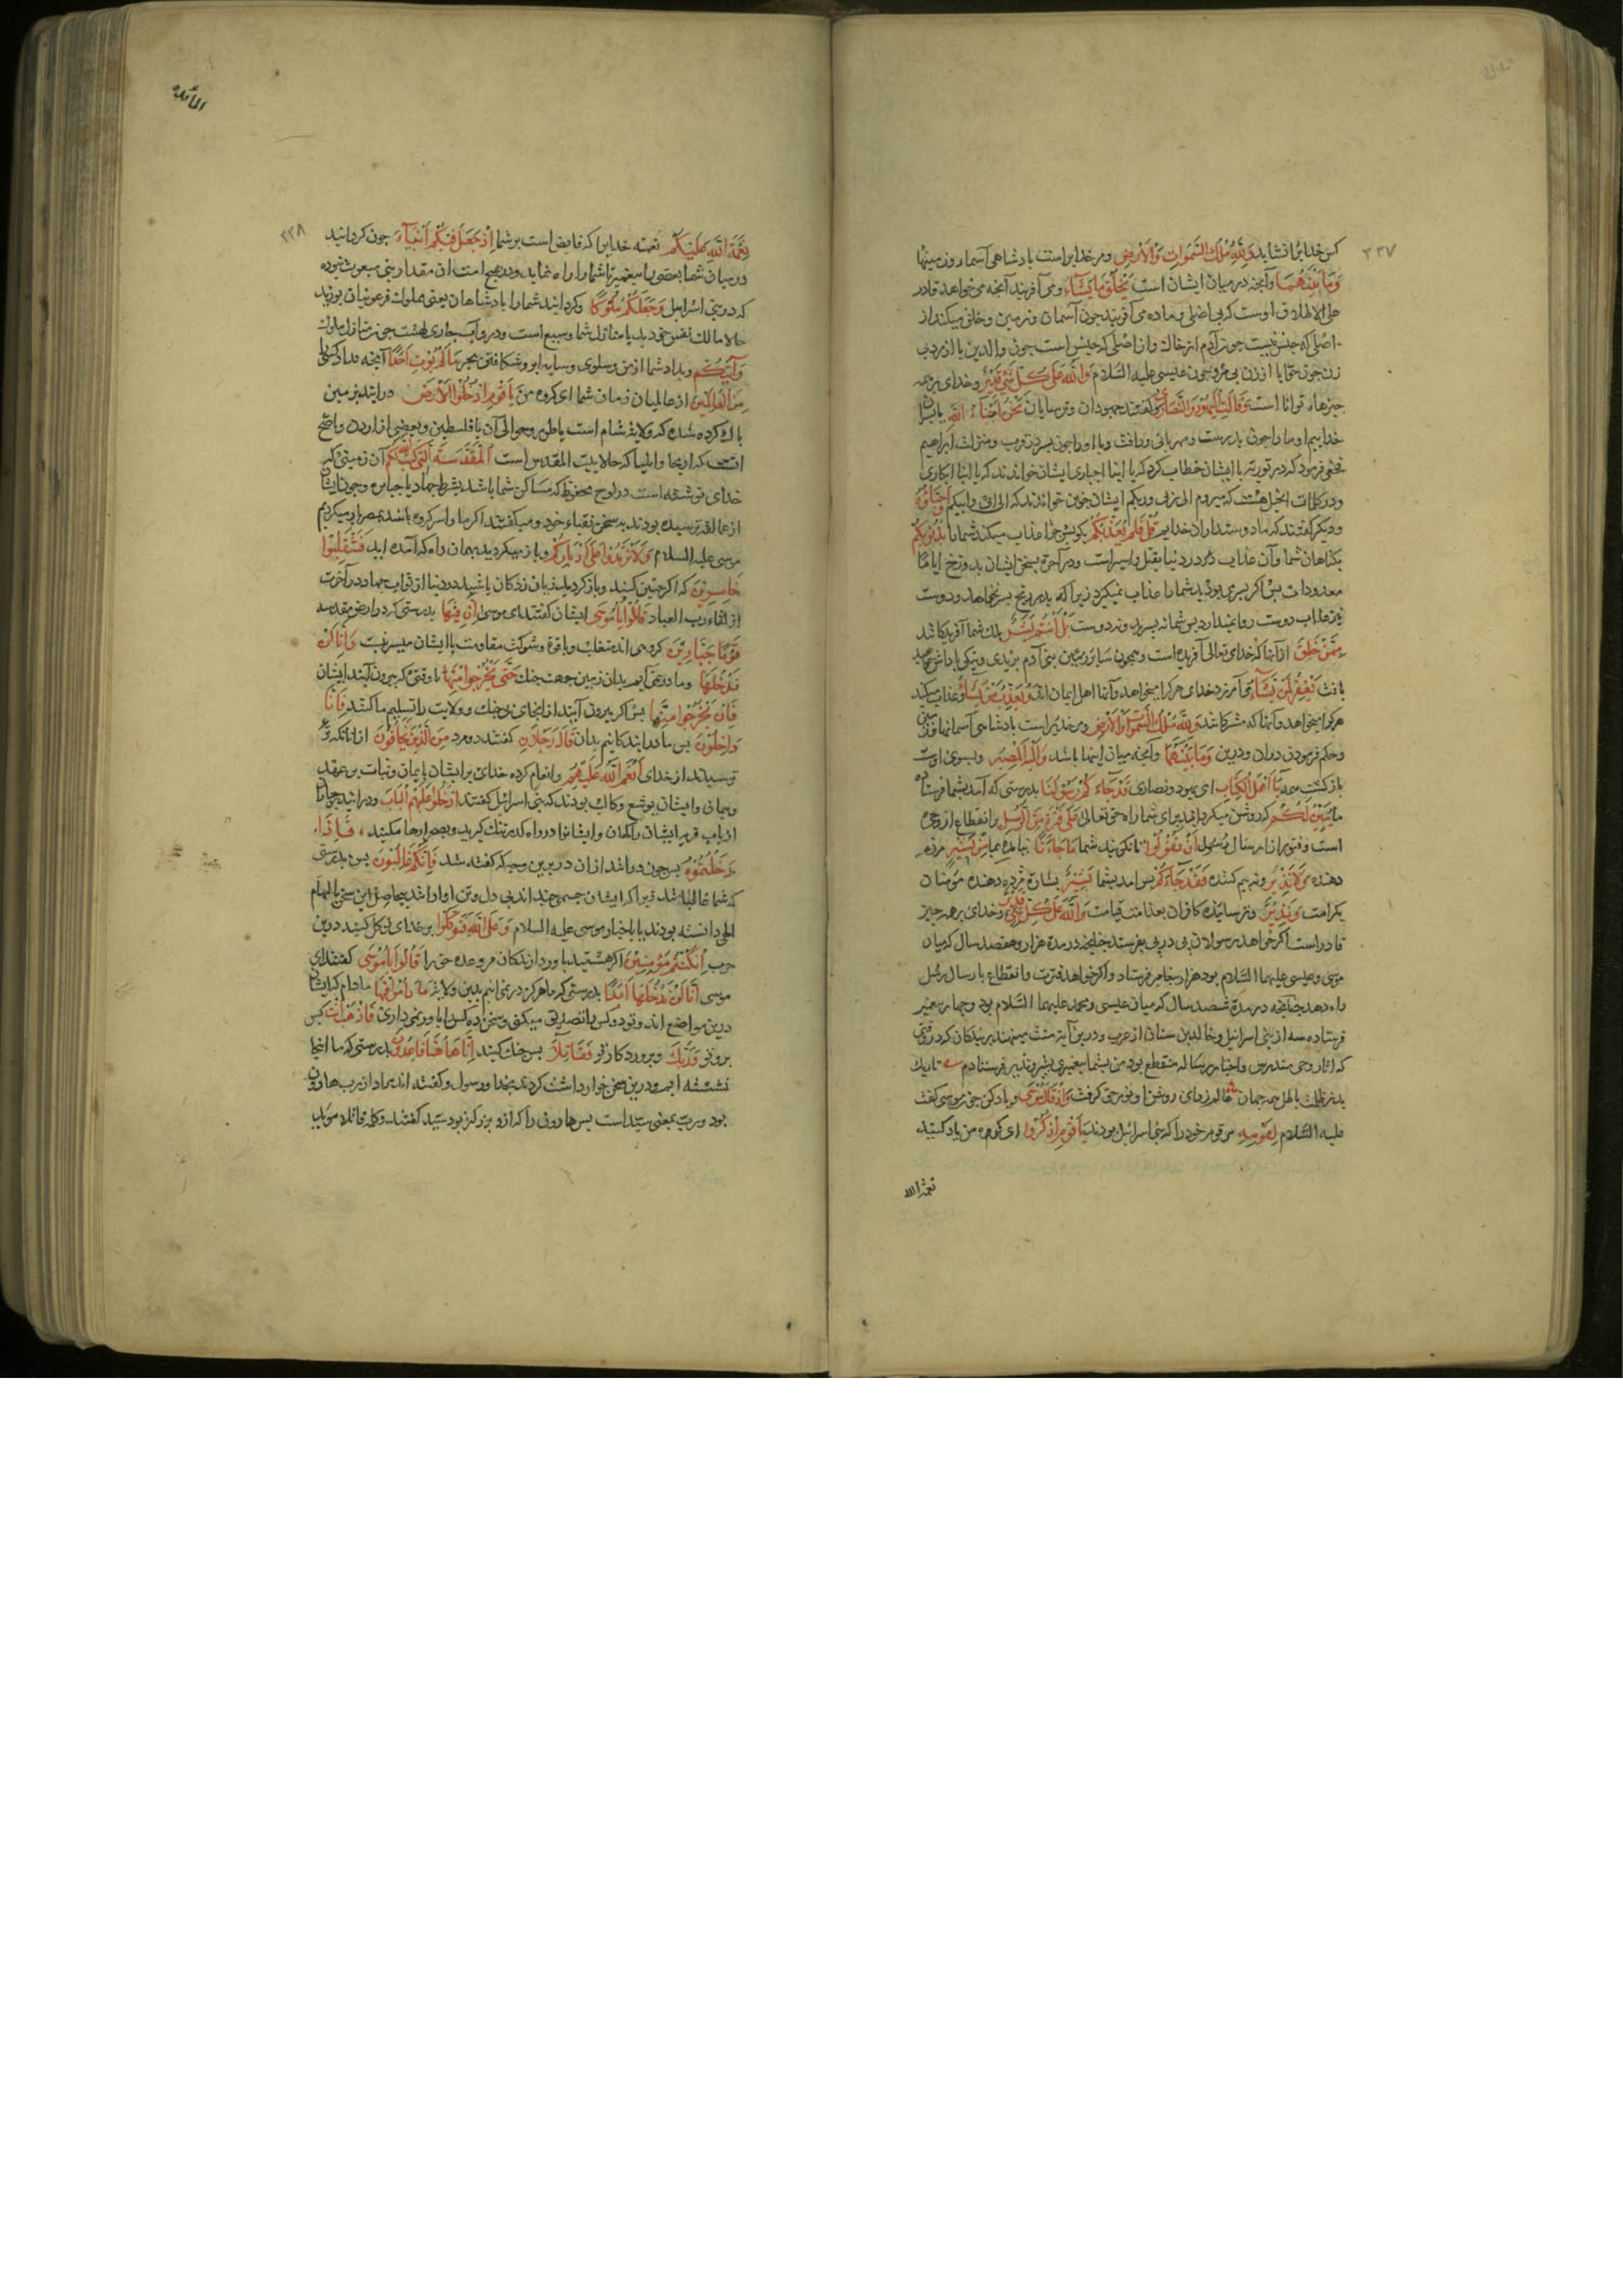 ۲۳۷
کس خدایرا نشاید وَلِلَّهِ مُلْكُ السَّمَوَاتِ وَالْأَرْضِ ومر خدایراست بادشاهی آسمان وزمینها
وَمَا بَيْنَهُمَا وآنچه در میان ایشان است يَخْلُقُ مَا يَشَاءُ ومی آفریند آنچه می خواهد قادر
علی الاطلاق اوست که بی اصلی و ماده می آفریند جون آسمان وزمین وخلق میکند از
اصلی که جنس نیست جون آدم از خاك واز اصلی که جنس است جون والدین یا از مرد بی
زن جون حوّا یا از زن بی مرد جون عیسی علیه السّلام وَاللَّهُ عَلَى كُلِّ شَيْءٍ قَدِيرٌ وخدای بر همه
جیزها توانا است وَقَالَتِ الْيَهُودُ وَالنَّصَارَى وکفتند جهودان وترسایان نَحْنُ أَبْنَاءُ اللَّهِ ما بسران
خداییم او ما را جون بدرست ومهربانی ورافت وبا او را جون بسر در قرب ومنزلت ابراهیم
نخعی فرمود که در توریة با ایشان خطاب کرد که یا ابنا احباری ایشان خواندند که یا ابنا ابکاری
ودر کلمات انجیل هست که میروم الی ربی وربکم ایشان جنین خواندند که الی ابی وابیکم وَأَحِبَّاؤُهُ
ودیکر کفتند که ما دوستداران خداییم قُلْ فَلِمَ يُعَذِّبُكُمْ بکو بس جرا عذاب میکند شما را بِذُنُوبِكُمْ
بکناهان شما وآن عذاب کرد در دنیا بقتل واسراست ودر آخرة بسخن ایشان بدوزخ ایامًا
معدودات بس اکر بسری بودید شما را عذاب نمیکرد زیرا که بدر رنج بسر نخواهد ودوست
نیز عذاب دوست روا ندارد بس شما نه بسرید ونه دوست بَلْ أَنْتُمْ بَشَرٌ بلك شما آفریدکانید
مِمَّنْ خَلَقَ از آنها که خدای تعالی آفریده است وهمجون سایرین از بنی آدم ببدی ونیکی باداش خواهید
یافت يَغْفِرُ لِمَنْ يَشَاءُ می آمرزد خدای هر کرا میخواهد وآنها اهل ایمان اند وَيُعَذِّبُ مَنْ يَشَاءُ وعذاب میکند
هر کرا میخواهد وآنها که مشرکانند وَلِلَّهِ مُلْكُ السَّمَوَاتِ وَالْأَرْضِ ومر خدایراست بادشاهی آسمانها وزمین
وحکم فرمودن دران ودرین وَمَا بَيْنَهُمَا وآنچه میان اینها باشد وَإِلَيْهِ الْمَصِيرُ وبسوی اوست
بازکشت همه يَا أَهْلَ الْكِتَابِ ای یهود ونصاری قَدْ جَاءَكُمْ رَسُولُنَا بدرستی که آمد بشما فرستاده
ما يُبَيِّنُ لَكُمْ که روشن میکرداند برای شما راه حق تعالی عَلَى فَتْرَةٍ مِنَ الرُّسُلِ بر انقطاع از وحی
است وفتور از ارسال رسول أَنْ تَقُولُوا تا نکویید شما مَا جَاءَنَا نیامد بما مِنْ بَشِيرٍ مژده
دهنده وَلَا نَذِيرٍ ونه بیم کننده فَقَدْ جَاءَكُمْ بس آمد بشما بَشِيرٌ بشارة مژده دهنده مؤمنان
بکرامت وَنَذِيرٌ وترساننده کافران بعذاب قیامت وَاللَّهُ عَلَى كُلِّ شَيْءٍ قَدِيرٌ وخدای بر همه جیز
قادر است اکر خواهد رسولان بی در بی بفرستد جنانجه در مدة هزار وهفصد سال که میان
موسی وعیسی علیهما السّلام بود هزار بیغامبر فرستاد واکر خواهد فترت وانقطاع بارسال رسل
راه دهد جنانجه در مدة شصد سال که میان عیسی ومحمد علیهما السّلام بود وجهار بیغمبر
فرستاده سه از بنی اسرائیل وخالد بن سنان از عرب ودرین آیة منت مینهند بر بندکان که در وقتی
که آثار وحی مندرس واخبار رسالة منقطع بود من بشما بیغمبری بشیر ونذیر فرستادم تاریك
بد ز ظلمت باطل همه جهان عالم ز رای روشن او نور حق کرفت وَإِذْ قَالَ مُوسَى ویاد کن جون موسی کفت
علیه السّلام لِقَوْمِهِ مر قوم خود را که بنی اسرائیل بودند يَا قَوْمِ اذْكُرُوا ای کروه من یاد کنید
نعمة الله
المائدة
۲۳۸
نِعْمَةَ اللَّهِ عَلَيْكُمْ نعمة خدایرا که فایض است بر شما إِذْ جَعَلَ فِيكُمْ أَنْبِيَاءَ جون کردانید
در میان شما بعضی را بیغمبر تا شما را راه نماید ودر هیج امت آن مقدار نبی مبعوث نبوده
که در بنی اسرائیل وَجَعَلَكُمْ مُلُوكًا وکردانید شما را بادشاهان یعنی مملوك فرعونیان بودید
حالا مالك نفس خودید یا منازل شما وسیع است ودر و آب جاری هست جون منازل ملوك
وَآتَاكُمْ وبداد شما از من وسلوی وسایه ابر وشکافتن بحر مَا لَمْ يُؤْتِ أَحَدًا آنچه نداد کسی را
مِنَ الْعَالَمِينَ از عالمیان زمان شما ای کروه من يَا قَوْمِ ادْخُلُوا الْأَرْضَ درایید بزمین
باك کرده شده که ولایة شام است یا طور وحوالی آن یا فلسطین وبعضی از اردن واصح
آنست که اریحا وایلیا که حالا بیت المقدس است الْمُقَدَّسَةَ الَّتِي كَتَبَ اللَّهُ لَكُمْ آن زمینی که
خدای نوشته است در لوح محفوظ که مساکن شما باشد بشرط جهاد با جبابره وجون ایشان
از عمالقه ترسیده بودند بسخن نقباء خود ومیکفتند اکر ما را سر کروه باشد بمصر باز میکردیم
موسی علیه السلام وَلَا تَرْتَدُّوا عَلَى أَدْبَارِكُمْ وباز میکردید بهمان راه که آمده اید فَتَنْقَلِبُوا
خَاسِرِينَ که اکر جنین کنید وباز کردید زیان زدکان باشید در دنیا از ثواب جهاد ودر آخرت
از لقاء رب العباد قَالُوا يَا مُوسَى ایشان کفتند ای موسی إِنَّ فِيهَا بدرستی که در ارض مقدسه
قَوْمًا جَبَّارِينَ کروهی اند متغلب وباقوة وشوکت مقاومت با ایشان میسر نیست وَإِنَّا لَنْ
نَدْخُلَهَا وما در نمی آییم بدان زمین جهت جنك حَتَّى يَخْرُجُوا مِنْهَا تا وقتی که بیرون آیند ایشان
فَإِنْ يَخْرُجُوا مِنْهَا بس اکر بیرون آیند از انجای بی جنك وولایت را تسلیم ما کنند فَإِنَّا
دَاخِلُونَ بس ما درایندکانیم بدان قَالَ رَجُلَانِ کفتند دو مرد مِنَ الَّذِينَ يَخَافُونَ از انانکه می
ترسیدند از خدای أَنْعَمَ اللَّهُ عَلَيْهِمَا وانعام کرده خدای بر ایشان بایمان وثبات بر عهد
وبیمان وایشان یوشع وکالب بودند که بنی اسرائیل کفتند ادْخُلُوا عَلَيْهِمُ الْبَابَ
از باب قریه ایشان ناکهان وایشانرا در راه کذر تنك کیرید وبصحرا رها مکنید فَإِذَا
دَخَلْتُمُوهُ بس جون در آمدید از ان در فَإِنَّكُمْ غَالِبُونَ بس بدرستی
که شما غالبانید زیرا که ایشان جسمی جند اند بی دل این سخن بالهام
الهی دانسته بودند یا باخبار موسی علیه السلام وَعَلَى اللَّهِ فَتَوَكَّلُوا بر خدای توکل کنید درین
حرب إِنْ كُنْتُمْ مُؤْمِنِينَ اکر هستید باور دارندکان مر وعده حق را قَالُوا يَا مُوسَى کفتند ای
موسی إِنَّا لَنْ نَدْخُلَهَا أَبَدًا بدرستی که ما هرکز در نمی آییم بدین ولایة مَا دَامُوا فِيهَا مادام که ایشان
درین مواضع اند وتو دو کس را تصدیق میکنی وسخن ده کس را باور نمی داری فَاذْهَبْ أَنْتَ بس
برو تو وَرَبُّكَ وبروردکار تو فَقَاتِلَا بس جنك کنید إِنَّا هَاهُنَا قَاعِدُونَ بدرستی که ما اینجا
نشسته ایم ودرین سخن خوار داشت کردند بخدا ورسول وکفته اند مراد از رب هارون
بود ورب بمعنی سید است بس هارون را که ازو بزرکتر بود سید کفتند وکلمه قاتلا مؤید